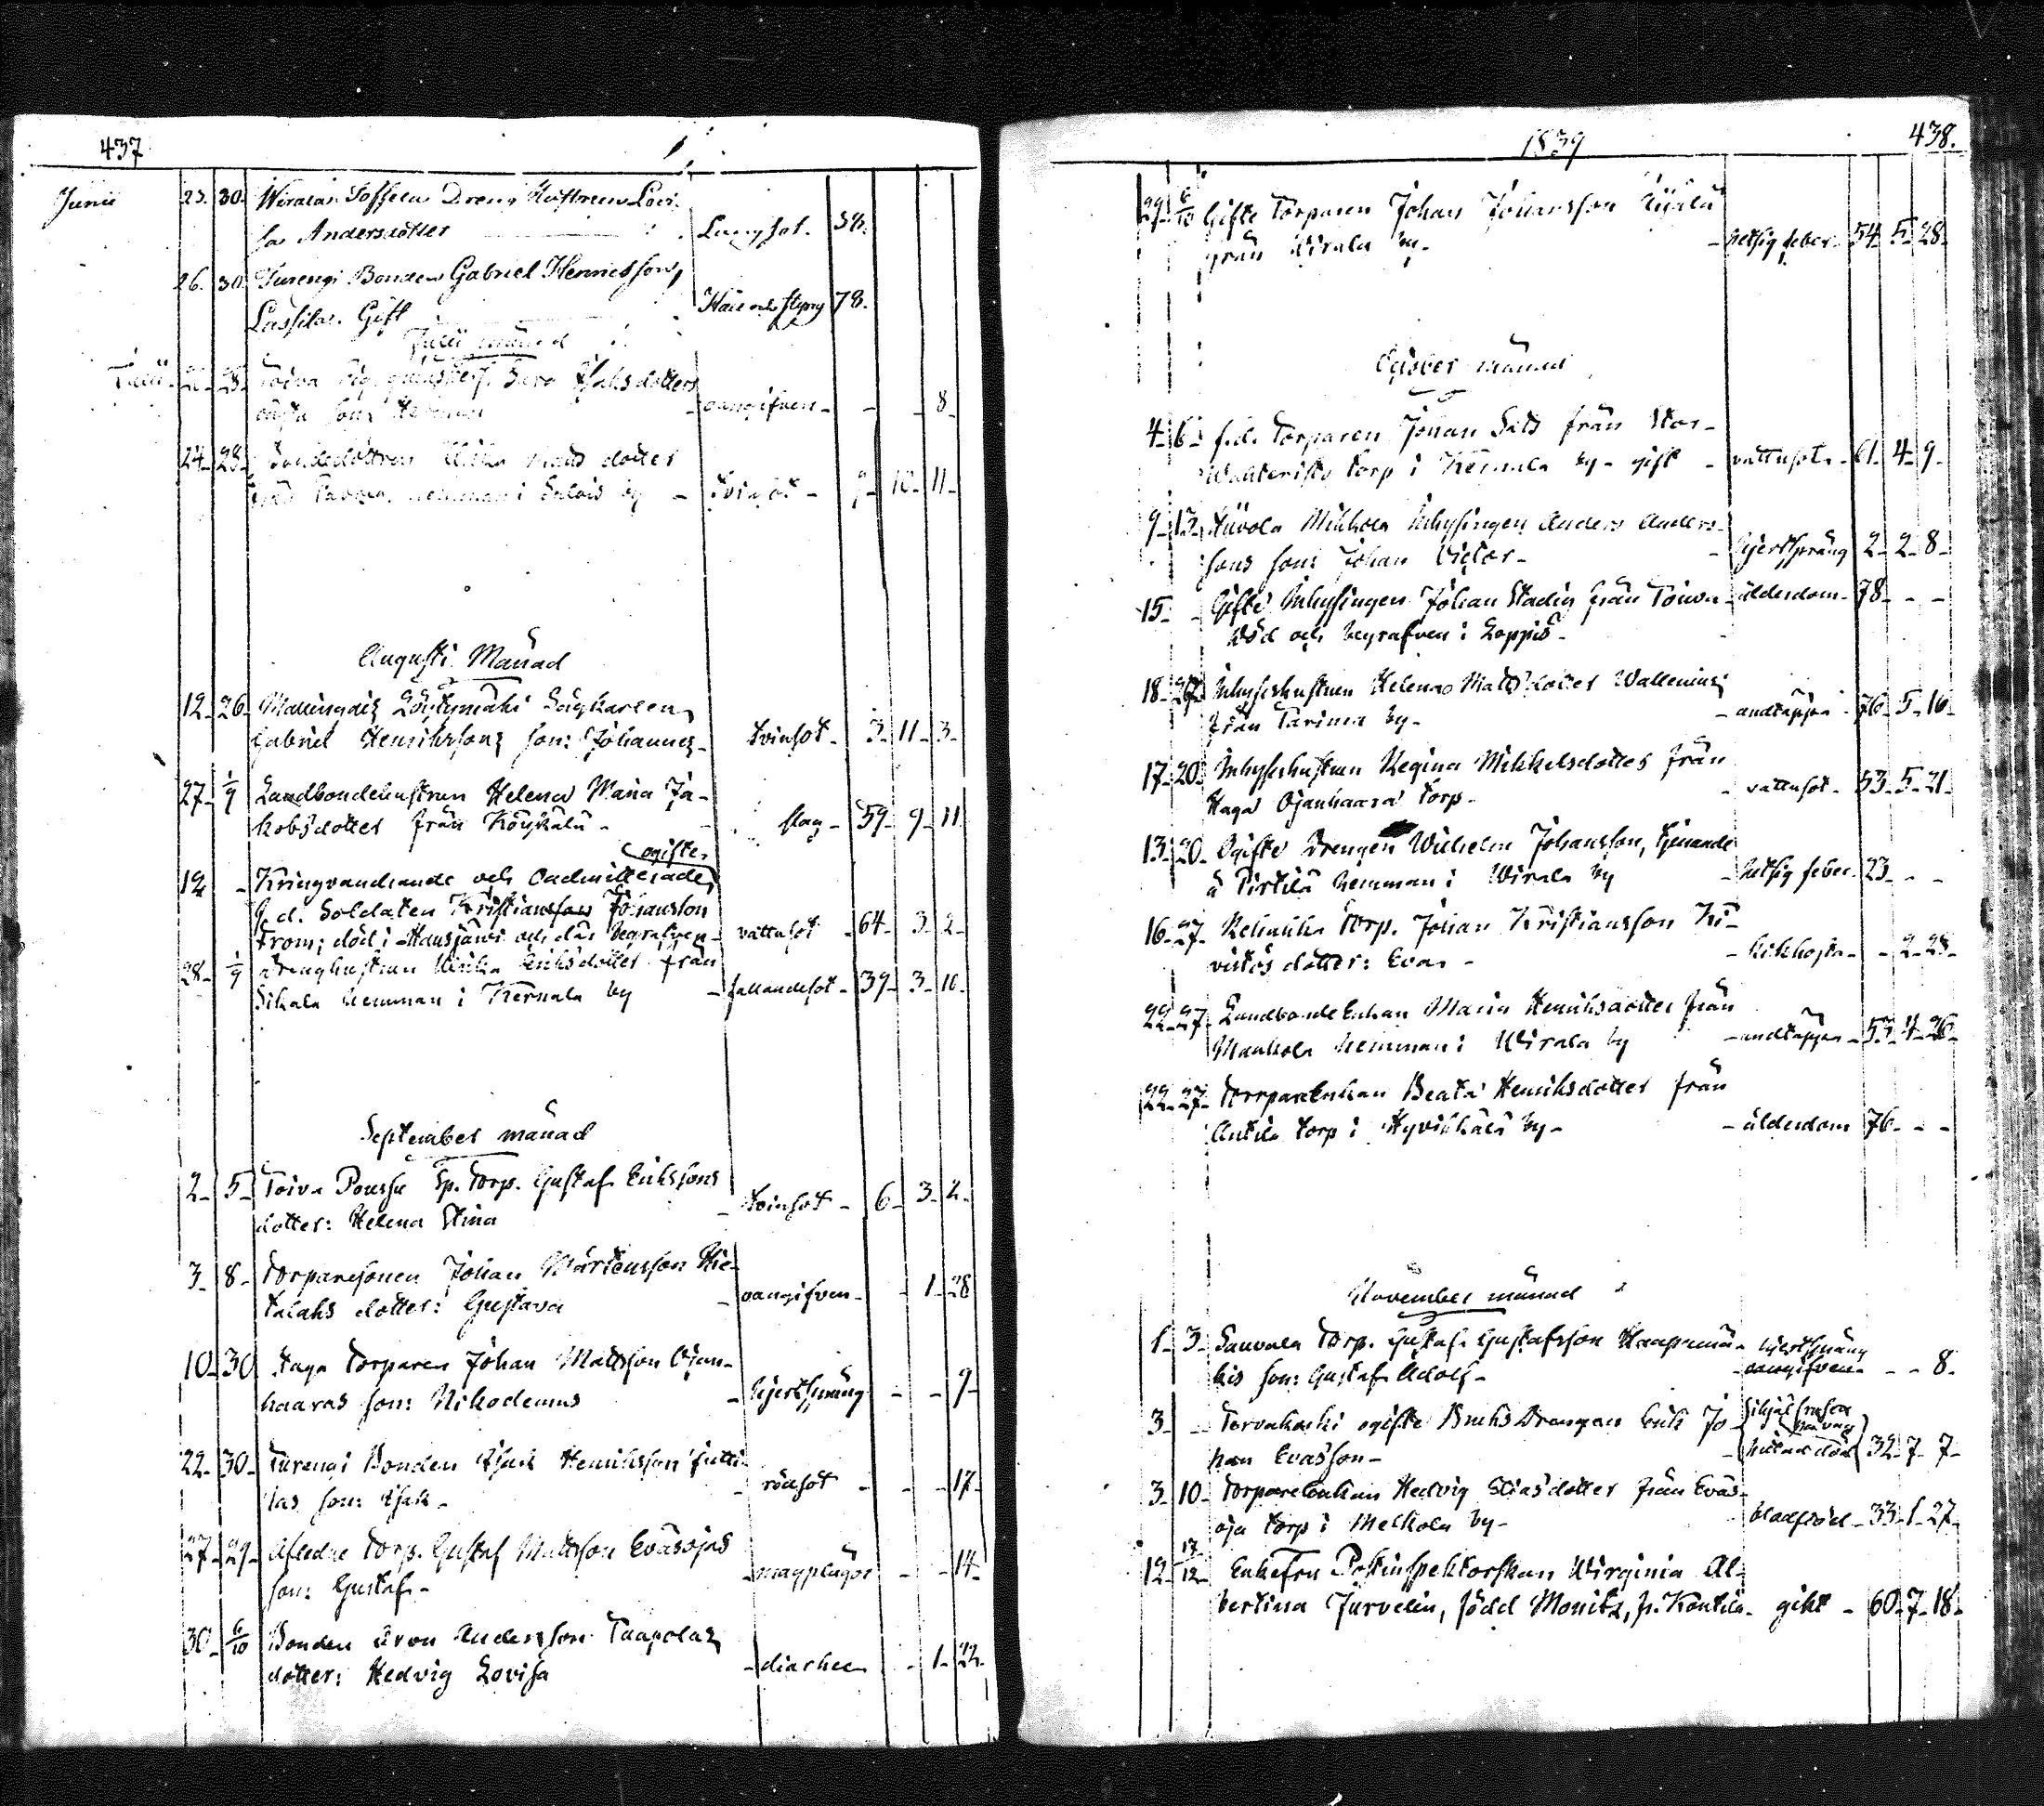 437
Junii 23. 30. Wiralas Soffelas Dreng Hustrun Lovi-
sa Andersdotter Lungsot. 58.
26. 30. Turengi Bonden Gabriel Henricsson
Lassilas. Gift Håll och styng 78.
Julii månad
Julii 28. Toiva Sara Isaksdotters
oägta son: Herman oangifven - - 8
24 28 Bondedottren Ulrika Mats dotter
från hemman i Salois by - tvinsot - 10 11
Augusti Månad
12 26 Mallinkais Löytymäki
Gabriel Henrikssons son: Johannes tvinsot - 3 11 3
27 1/9 Landbondehustrun Helena Maria Ja-
kobsdotter från slag - 59 9 11
ogifte
12 - Kringvandrande och Oadmitterade
f.d. Soldaten Kristiansson Johansson
From; död i Hausjärvi och där begrafven vattusot - 64 3 2
28 1/9 Drenghustrun Ulrika Eriksdotter från
Sikala hemman i Kernala by - fallandesot - 39 3 10
September månad
2 5 Toiva Poussu Sp. torp. Gustaf Erikssons
dotter: Helena Stina - tvinsot - 6 3 2
3 8 Torparesonen Johan Mårtensson Hie-
talahs dotter: Gustava - oangifven - - 1 28
10 30 Haga Torparen Johan Mattsson Ojan-
haaras son: Nikodemus - hjertsprång - - 9
22 30 Turengi Bonden Isak Henriksson Jutti-
las son: Isak - rödsot - - - 17
27 29 Aflidne Torp. Gustaf Mattsson Eväsojas
son: Gustaf - magplågor - - 14
30 6/10 Bonden Aron Andersson Taapolas
dotter: Hedvig Lovisa - diarhee - 1 22
1839 438.
29 6/10 Gifte Torparen Johan Johansson
från Wirala by - hetsig feber 54 5 28
October månad
4 6 f.d. Torparen Johan Sald från Stor-
Torp i Kernala by - gift - vattusot - 61 4 9
9 13 Hüvola Mikkola Inhysingen Anders Anders-
sons son: Johan Victor - hjertsprång 2 2 8
15 - Gifte Inhysingen Johan Stadig från Toiva ålderdom 78 - -
död och begrafven i Loppis -
18 27 Inhyseshustrun Helena Matsdotter Wallenius
från Tarinia by - andtäppa - 76 5 16
17 20 Inhyseshustrun Regina Mikkelsdotter från
Haga Ojanhaara Torp - vattusot - 53 5 21
13 20 Ogifte Drengen Wilhelm Johansson, tjenande
å Pirtilä hemman i Wirala by - hetsig feber 23 - -
16 27 Torp. Johan Kristiansson Ki-
vistös dotter: Eva - kikhosta - - 2 23
22 27 Landbonde Enkan Maria Henriksdotter från
Maukola hemman i Wirala by - andtäppa - 53 4 26
22 27 Torpare Enkan Beata Henriksdotter från
Antila torp i Hyvikkälä by - ålderdom 76 - -
November månad
1 3 Sauvala Torp. Gustaf Gustafsson Haapamä- hjertsprång
kis son: Gustaf Adolf - oangifven - - 8
3 - Tervakoski ogifte Bruks Drengen Erik Jo-
han Evasson - 32 7 7
3 10 Torpare Enkan Hedvig Eliasdotter från Eväs-
oja torp i Melkola by - 33 1 27
12 17/12 Enkefru Postinspektorskan Wirginia Al-
bertina Järvelin, född Monitz, fr. Kontila - gikt - 60 7 18